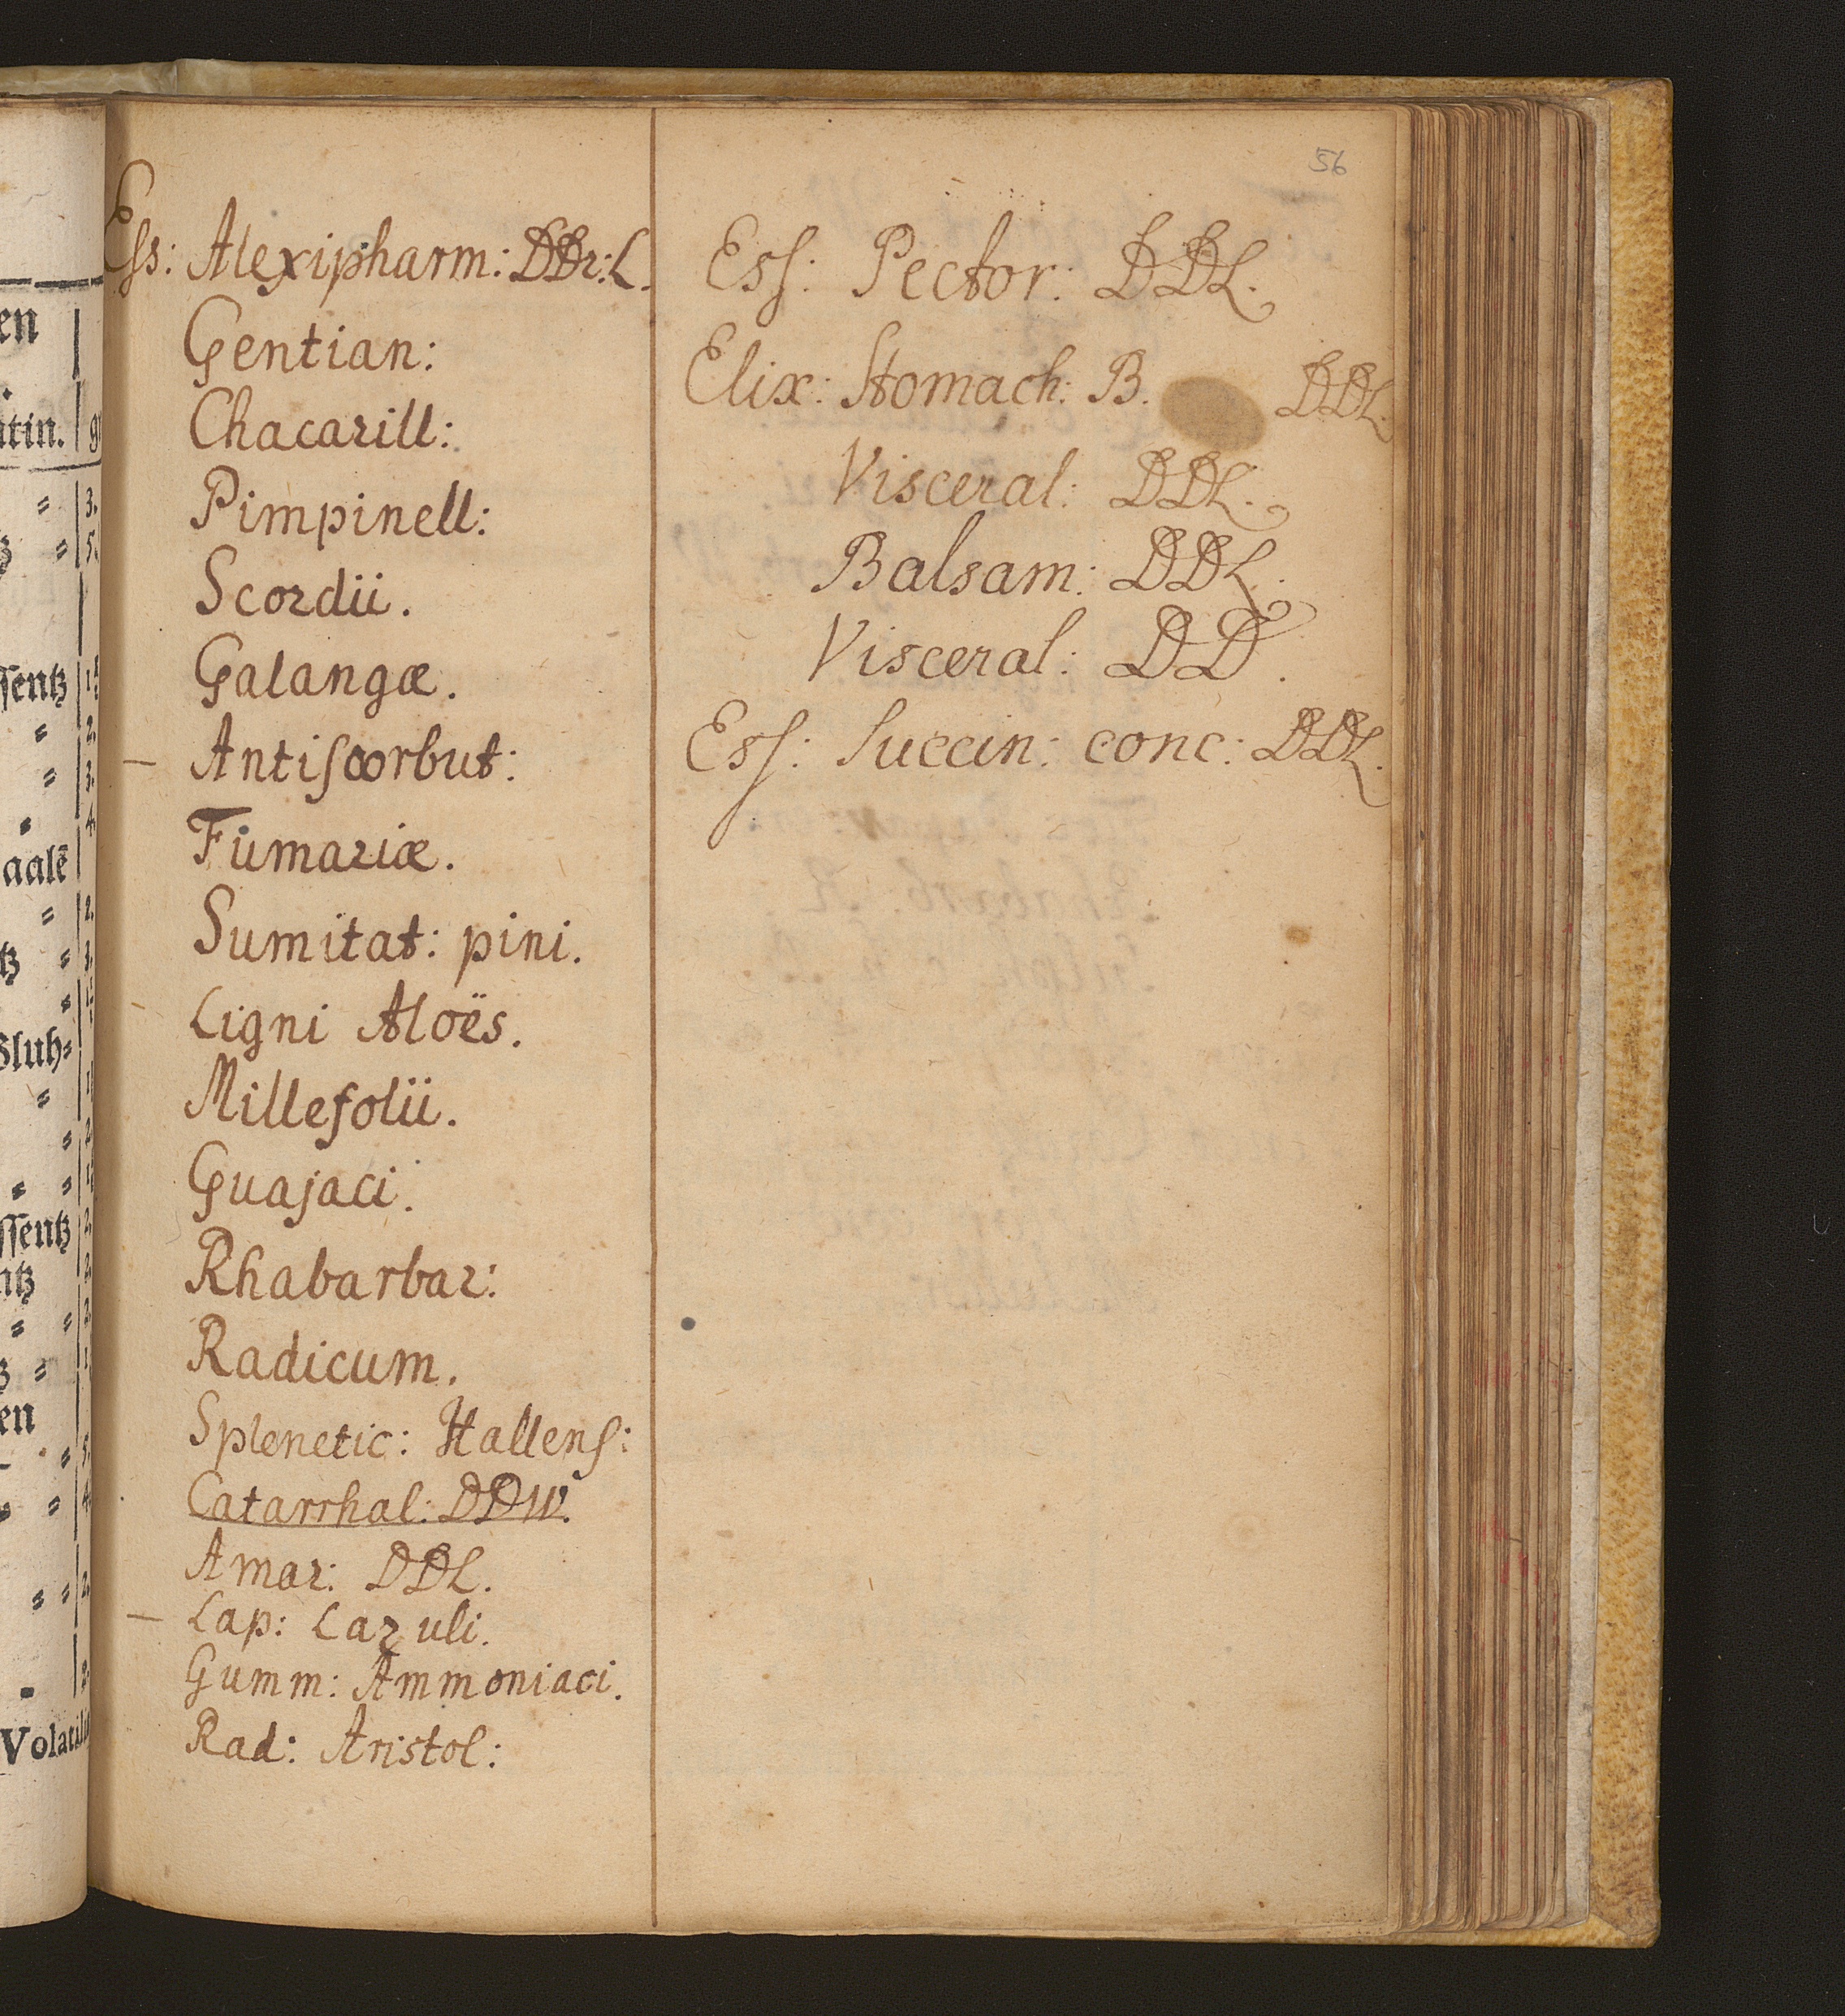 en
atin.
3.
5.
ssentz
2.
3.
4.
aalē
2.
tz
Bluh=
2.
ssentz
2.
ntz
2.
en
5.
4.
2.
Volatil
56
Ess: Alexipharm: DDr: L.
Gentian:
Chacarill:
Pimpinell:
Scordii.
Galangæ.
— Antiscorbut:
Fumariæ.
Sumitat: pini.
- Ligni Aloës.
Millefolii.
Guajaci.
Rhabarbar:
Radicum.
Splenetic: Hallens:
Catarrhal: DDW.
Amar: DDL.
— Lap: Lazuli.
Gumm: Ammoniaci.
Rad: Aristol:
Ess: Pector: DDL.
Elix: Stomach: B. DDL.
Visceral: DDL.
Balsam: DDL.
Visceral: DD.
Ess: Succin: conc: DDL.